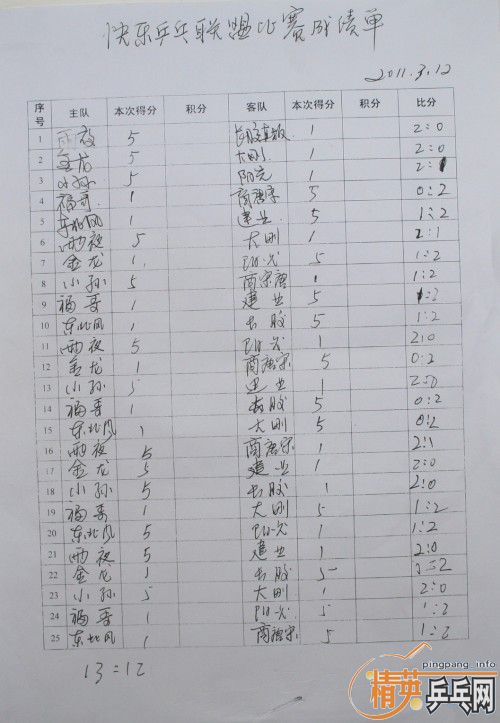 快乐乒乓联盟比赛成绩单
2011.3.12
序号 主队 本次得分 积分 客队 本次得分 积分 比分
1 雨夜 5 长胶直板 1 2:0
2 金龙 5 大刚 1 2:0
3 小孙 5 阳光 1 2:1
4 福哥 1 商唐宋 5 0:2
5 东北风 1 建业 5 1:2
6 雨夜 5 大刚 1 2:1
7 金龙 1 阳光 5 1:2
8 小孙 5 商宋唐 1 1:2
9 福哥 1 建业 5 1:2
10 东北风 1 长胶 5 1:2
11 雨夜 5 阳光 1 2:0
12 金龙 1 商唐宋 5 0:2
13 小孙 5 建业 1 2:0
14 福哥 1 长胶 5 0:2
15 东北风 1 大刚 5 0:2
16 雨夜 5 商唐宋 1 2:1
17 金龙 5 建业 1 2:0
18 小孙 5 长胶 1 2:0
19 福哥 1 大刚 5 1:2
20 东北风 5 阳光 1 1:2
21 雨夜 5 建业 1 2:0
22 金龙 长胶 5
23 小孙 5 大刚 1 2:0
24 福哥 1 阳光 5 1:2
25 东北风 1 商唐宋 5 1:2
13:12
pingpang_info
精英乒乓网